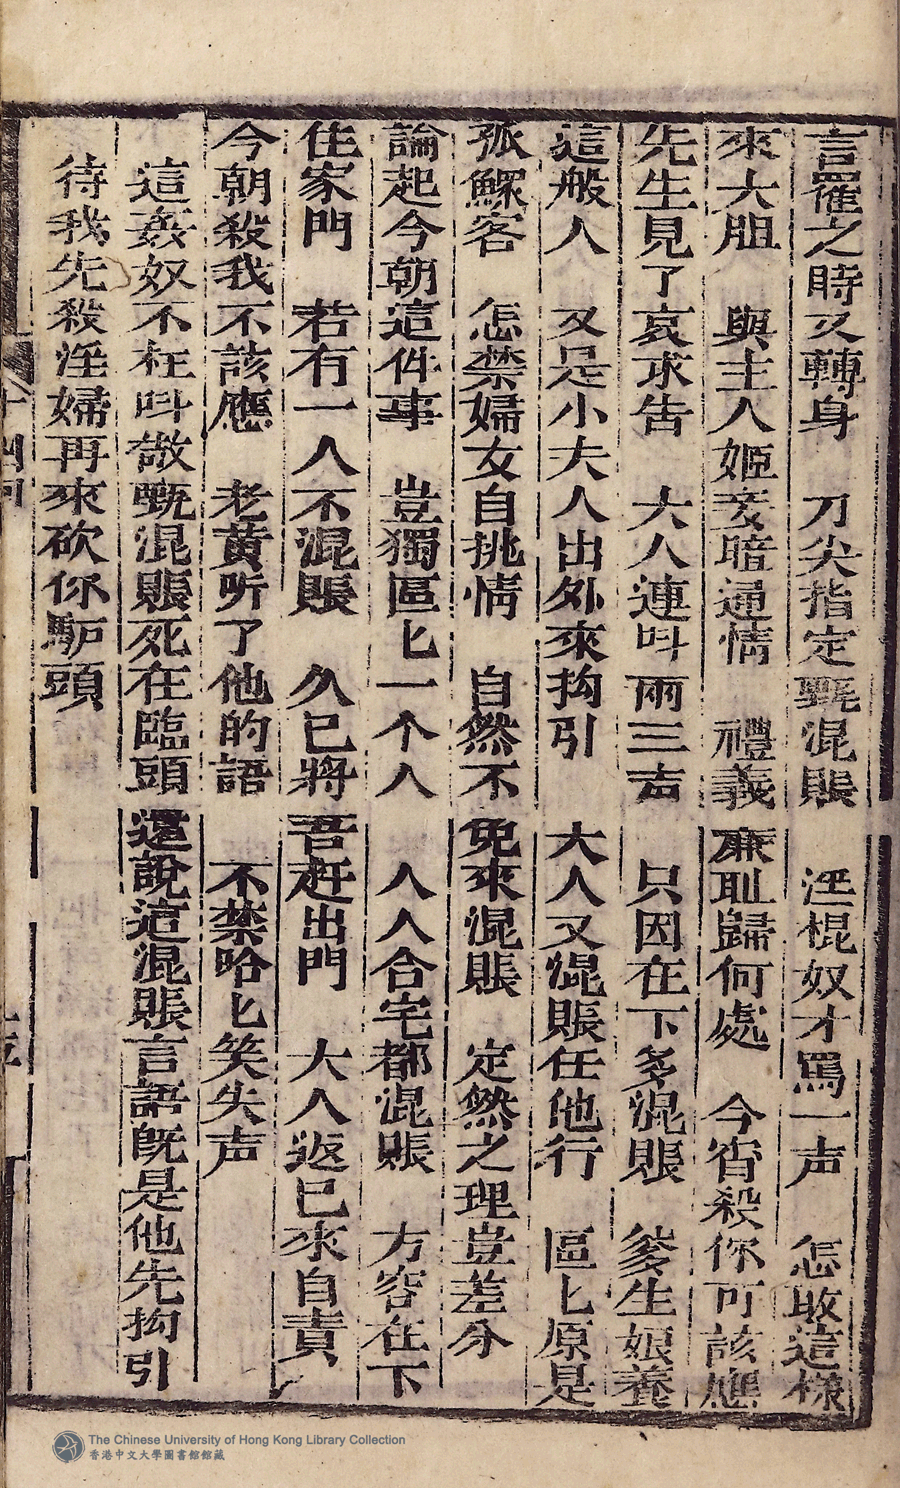 言罷之時又轉身　刀尖指定甄混賬　淫棍奴才罵一声　怎敢這樣
來大胆　與主人姬妾暗通情　禮義廉耻歸何處　今宵殺你可該應
先生見了哀求告　大人連呌兩三声　只因在下多混賬　爹生娘養
這般人　又是小夫人出外來抅引　大人又混賬任他行　區匕原是
孤鰥客　怎禁婦女自挑情　自然不免來混賬　定然之理豈差分
論起今朝這件事　豈獨區匕一个人　人人合宅都混賬　方容在下
住家門　若有一人不混賬　久已將吾赶出門　大人返已來自責
今朝殺我不該應　老黄听了他的語　不禁哈匕笑失声
這姦奴不枉呌做甄混賬死在臨頭還說這混賬言語既是他先抅引
待我先殺淫婦再來砍你馿頭
十四回
The Chinese University of Hong Kong Library Collection
香港中文大學圖書館館藏